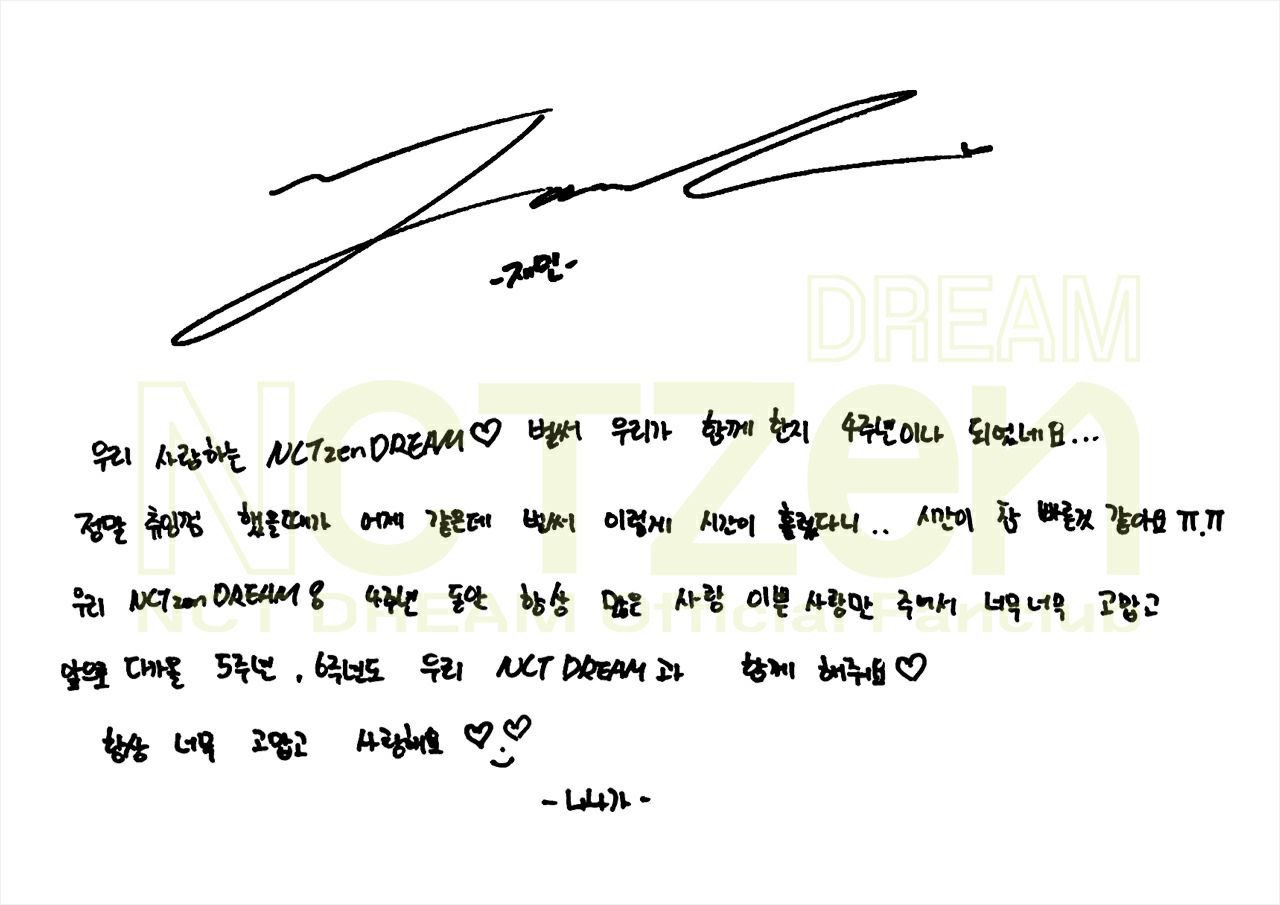 -재민-
DREAM
NCTzen
NCT DREAM Official Fanclub
우리 사랑하는 NCTzen DREAM♡ 벌써 우리가 함께 한지 4주년이나 되었네요...
정말 츄잉껌 했을때가 어제 같은데 벌써 이렇게 시간이 흘렀다니.. 시간이 참 빠른것 같아요 ㅠ.ㅠ
우리 NCTzen DREAM 용 4주년 동안 항상 많은 사랑 이쁜 사랑만 주어서 너무너무 고맙고
앞으로 다가올 5주년, 6주년도 우리 NCT DREAM과 함께 해줘요♡
항상 너무 고맙고 사랑해요 ♡.♡
- 나나가 -